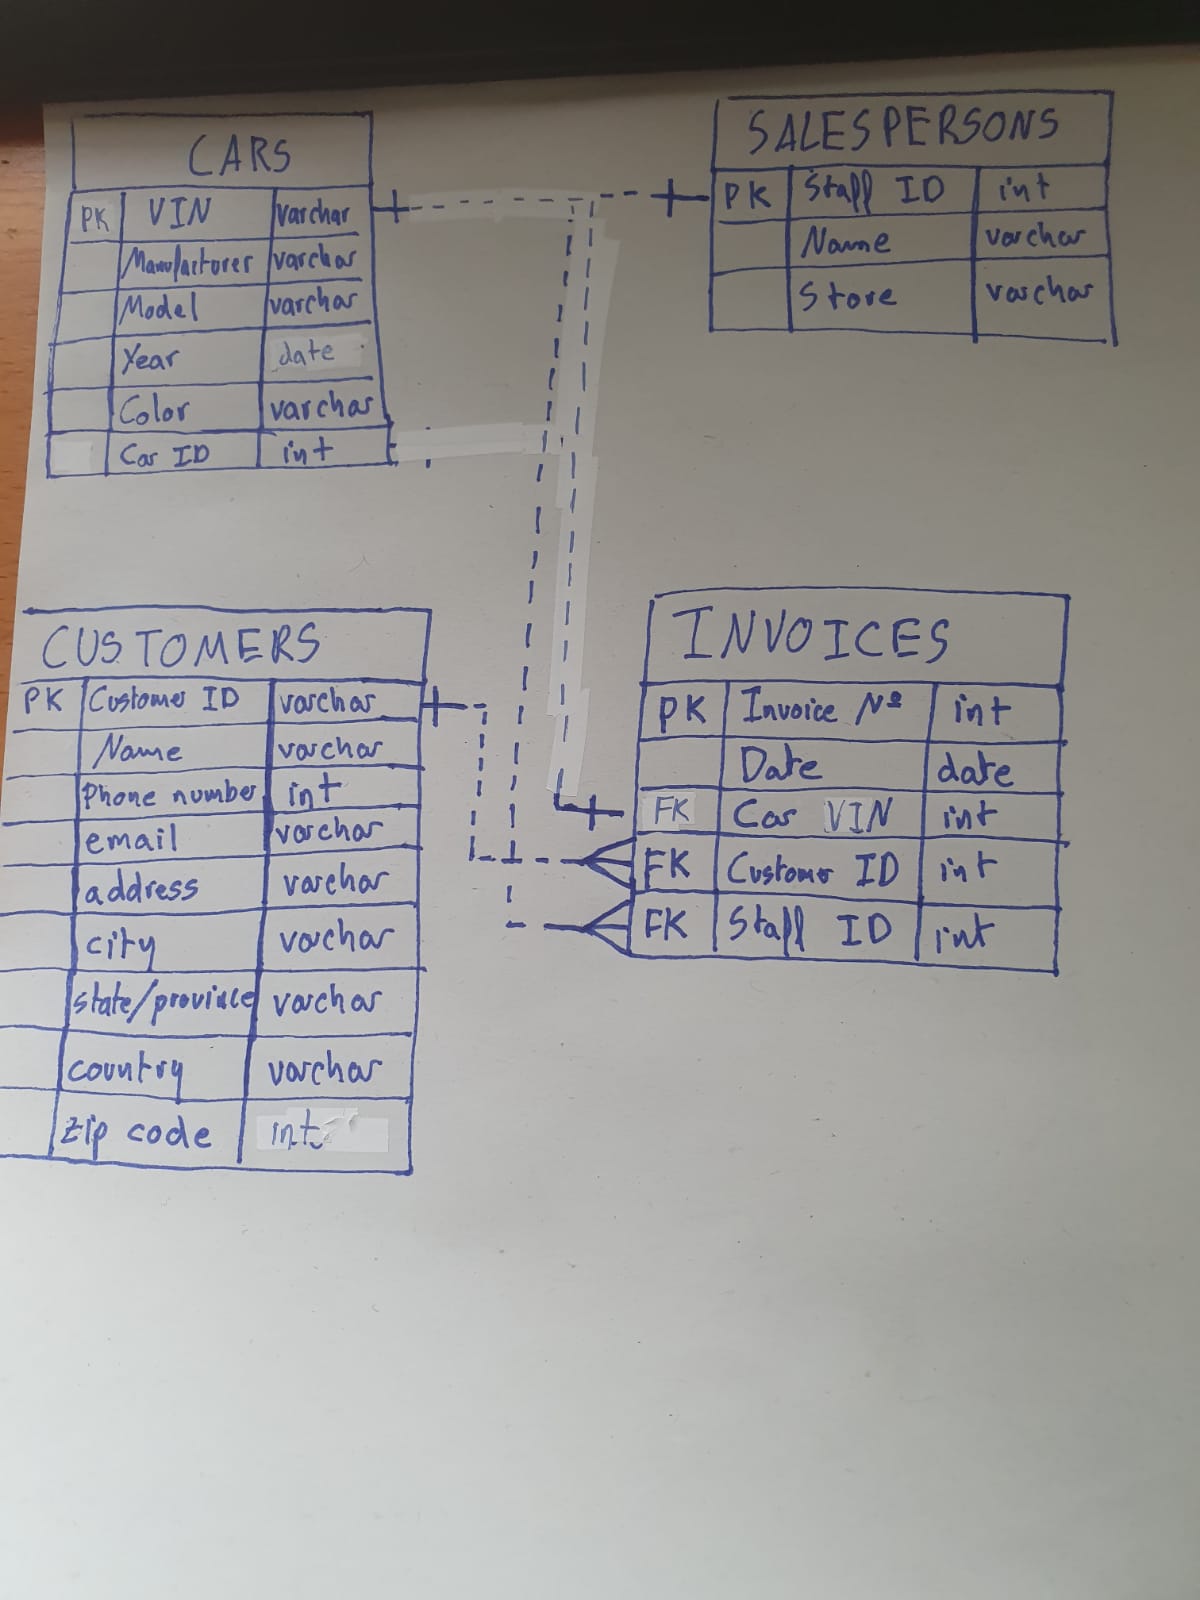 CARS
PK VIN varchar
Manufacturer varchar
Model varchar
Year date
Color varchar
Car ID int
SALESPERSONS
PK Staff ID int
Name varchar
Store varchar
CUSTOMERS
PK Customer ID varchar
Name varchar
Phone number int
email varchar
address varchar
city varchar
state/province varchar
country varchar
zip code int
INVOICES
PK Invoice Nº int
Date date
FK Car VIN int
FK Customer ID int
FK Staff ID int